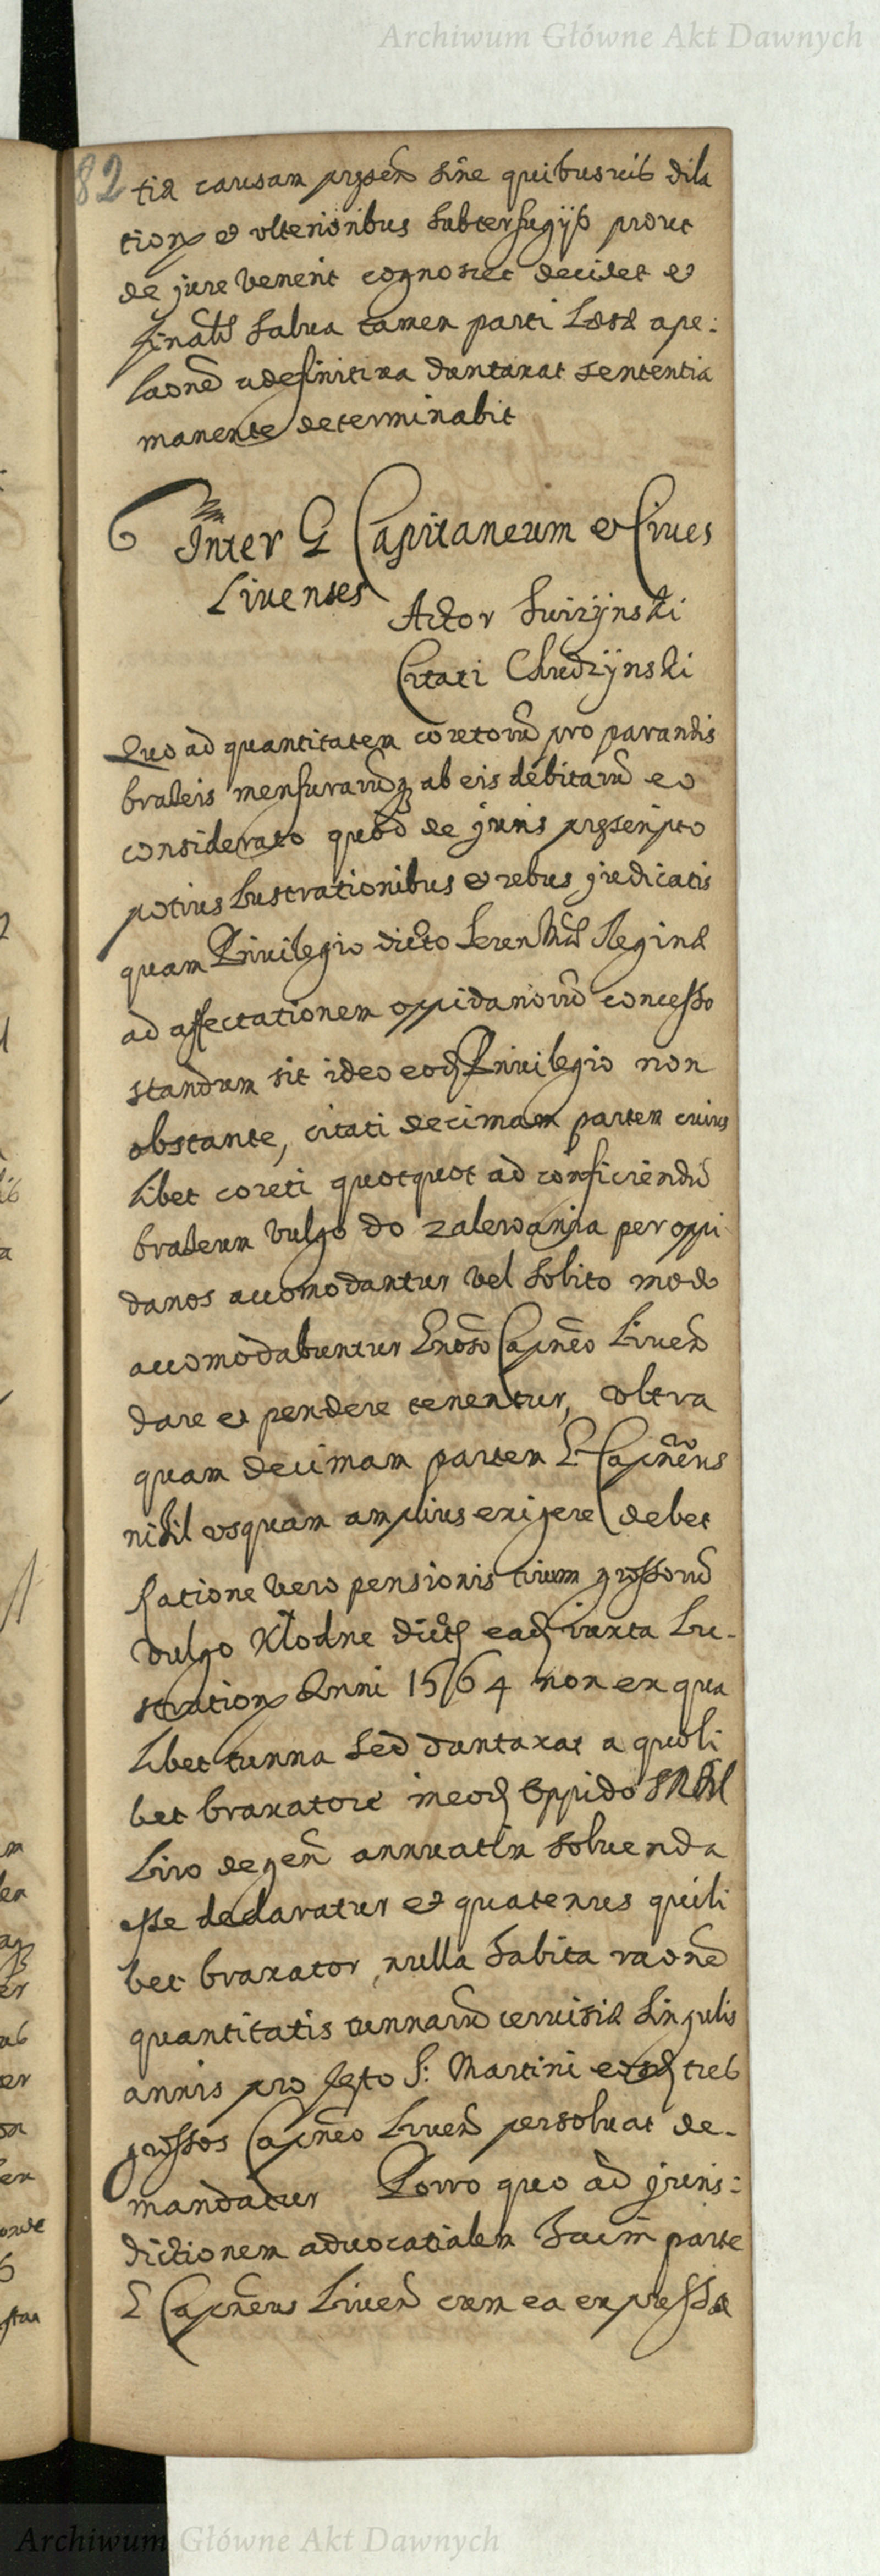 Archiwum Główne Akt Dawnych
82
tia causam prgsen sine quibusvis dila
tion et ulterioribus subterfugijs prout
de jure venerit cognoscet decidet et
finalr salva tamen parti Læsæ ape:
laone a definitiva duntaxat sententia
manente determinabit
Inter G Capitaneum et Cives
Livenses
Actor
Citati Chudzijnski
Quo ad quantitatem coretoru pro parandis
braseis mensurarug ab eis debitaru eo
considerato quod de juris prgscripto
potius Lustrationibus et rebus judicatis
quam Privilegio dicto Seren Reginæ
ad affectationem oppidanoru concesso
standum sit ideo eod Privilegio non
obstante, citati decimam partem cuius
libet coreti quotquot ad conficiendu
braseum vulgo do zalewania per oppi
danos accomodantur vel solito modo
accomodabuntur Gnoso Capneo Liven
dare et pendere tenentur, ultra
quam decimam partem G Capneus
nihil usquam amplius exigere debet
Ratione vero pensionis trium grossoru
vulgo Kłodne dict ead iuxta Lu-
stration Anni 1564 non ex qua
libet tunna sed duntaxat a quoli
bet braxatore in eod Oppido
Livo degen annuatim solvenda
esse declaratur et quatenus quili
bet braxator, nulla habita raone
quantitatis tunnaru cerevisiæ singulis
annis pro festo S: Martini eosd tres
grossos Capneo Liven persolvat de-
mandatur Porro quo ad juris:
dictionem advocatialem parte
G Capneus Liven cum ea expressa
Archiwum Główne Akt Dawnych